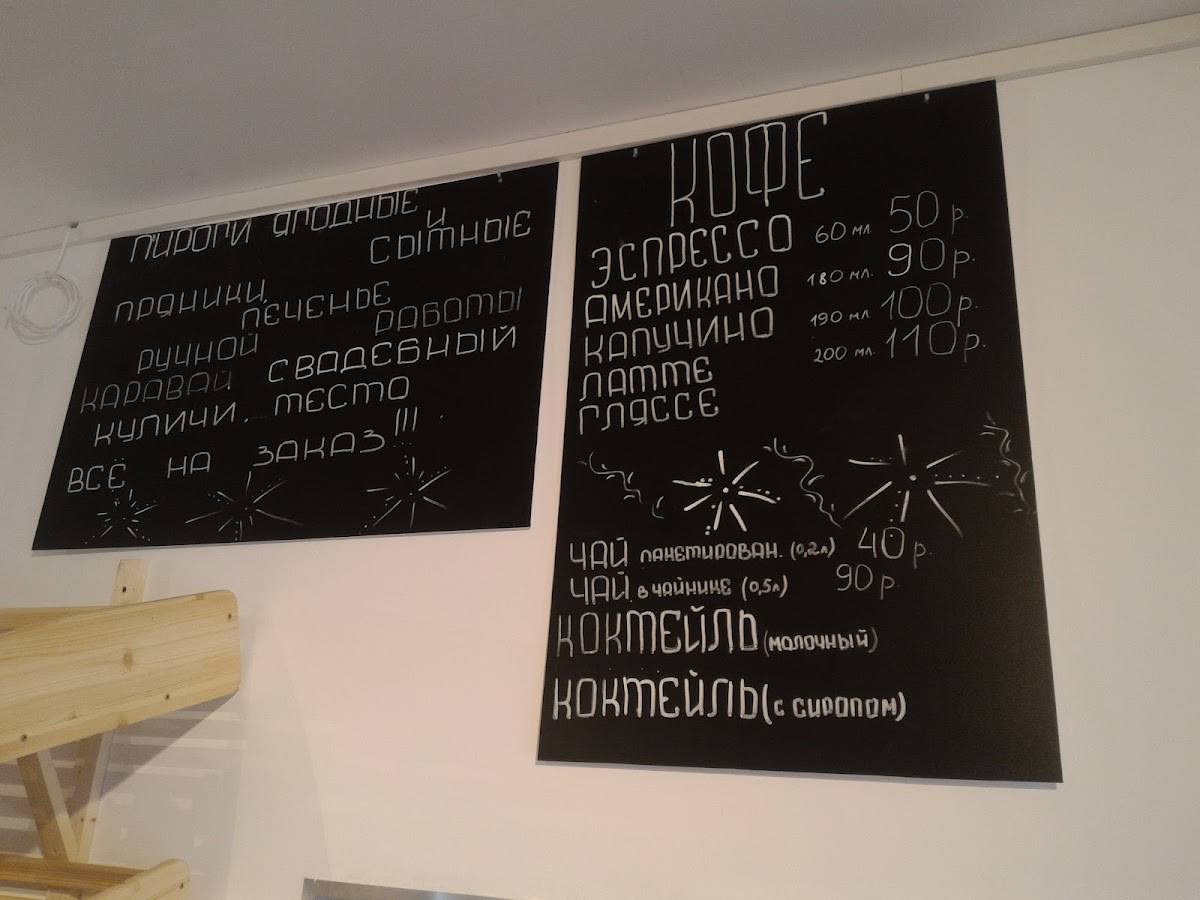 ПИРОГИ ЯГОДНЫЕ
И
СЫТНЫЕ
ПРЯНИКИ,
ПЕЧЕНЬЕ
РУЧНОЙ РАБОТЫ
КАРАВАЙ СВАДЕБНЫЙ
КУЛИЧИ. ТЕСТО
ВСЁ НА ЗАКАЗ!!!
КОФЕ
ЭСПРЕССО 60 мл. 50 р.
АМЕРИКАНО 180 мл. 90 р.
КАПУЧИНО 190 мл. 100 р.
ЛАТТЕ 200 мл. 110 р.
ГЛЯССЕ
ЧАЙ ПАКЕТИРОВАН. (0,2л) 40 р.
ЧАЙ В ЧАЙНИКЕ (0,5л) 90 р.
КОКТЕЙЛЬ (МОЛОЧНЫЙ)
КОКТЕЙЛЬ (С СИРОПОМ)